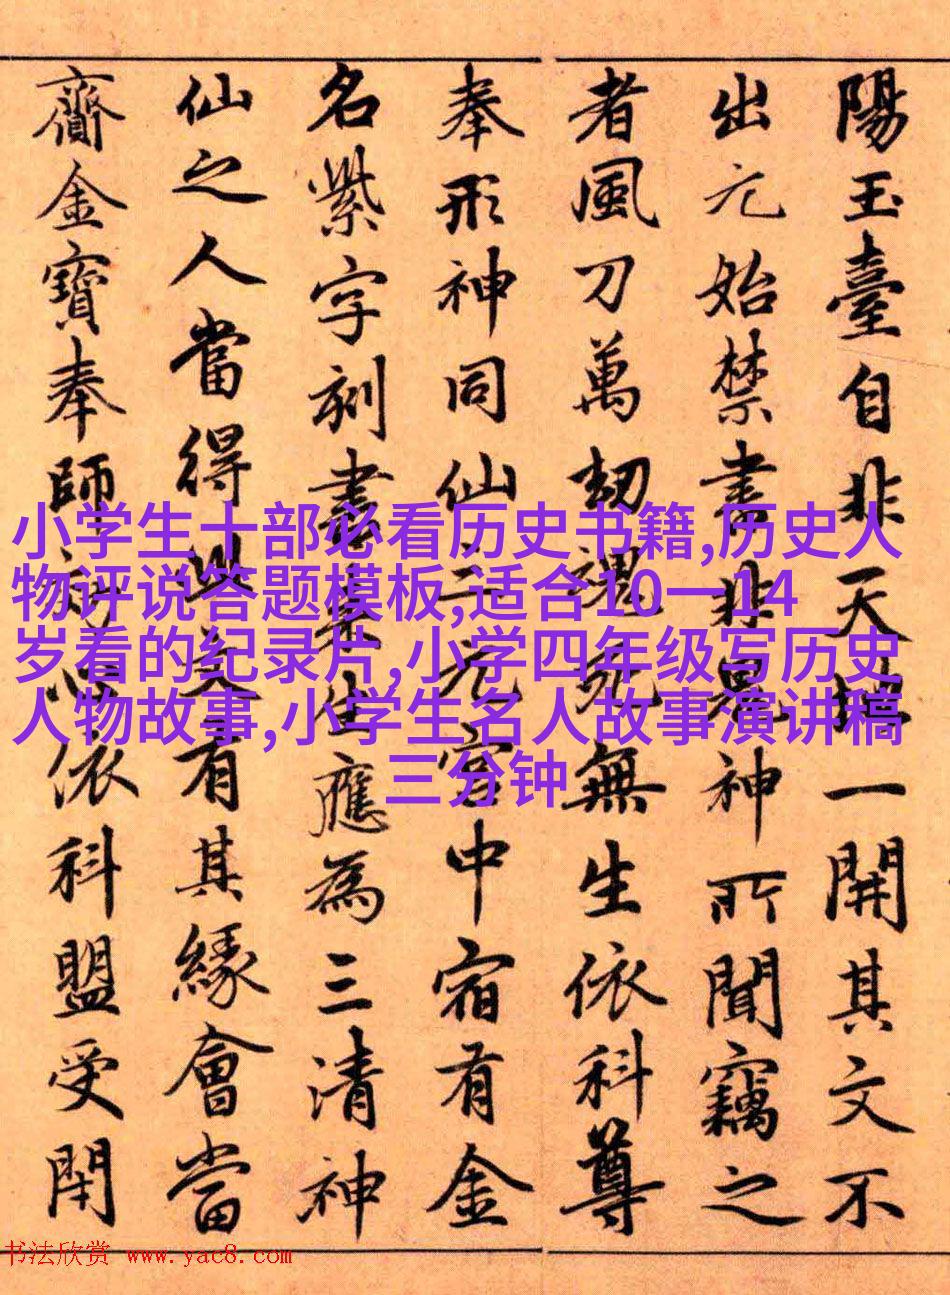 陽玉臺自非天地一開其文不
出元始禁書非鬼神所聞竊之
者風刀萬劫魂死無生依科尊
奉形神同仙三元宮中宿有金
名紫字刻書來生應為三清神
仙之人當得此文有其緣會當
齎金寶奉師効心依科盟受閇
小学生十部必看历史书籍,历史人
物评说答题模板,适合10一14
岁看的纪录片,小学四年级写历史
人物故事,小学生名人故事演讲稿
三分钟
书法欣赏 www.yac8.com